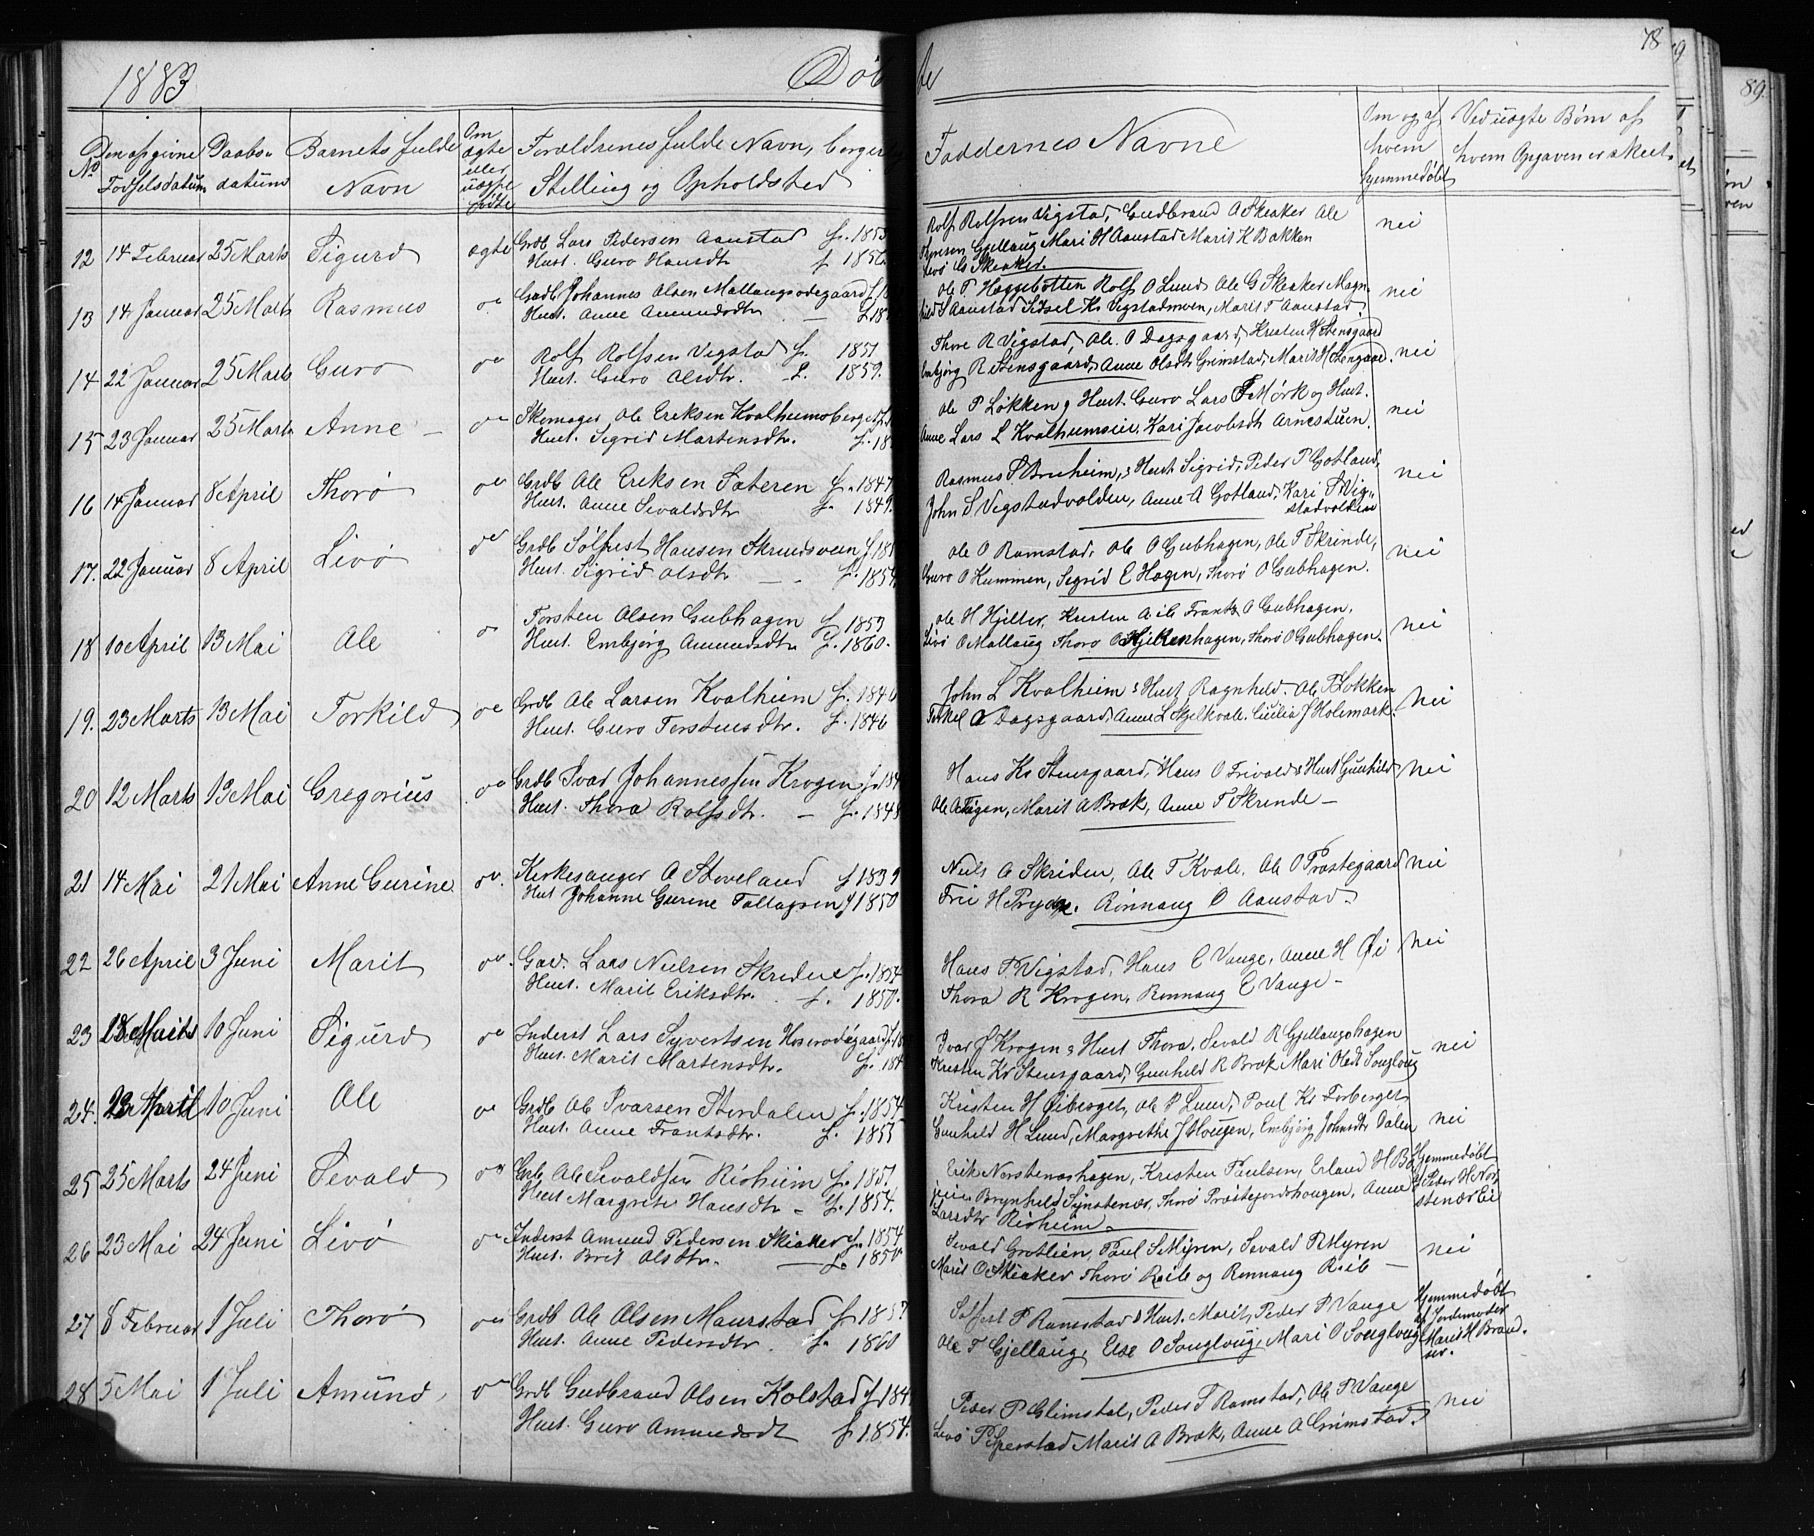 1883
Døbte
78
89.
No
Den opgivne Fødselsdatum
Daabsdatum
Barnets fulde Navn
Om ægte eller uægte fødte
Forældrenes fulde Navn, borgerlig
Stilling og Opholdsted
Faddernes Navne
Om og af hvem hjemmedøbt
Ved uægte Børn af hvem Opgaven er skeet.
12 14 Februar 25 Marts Sigurd ægte Grdb Lars Pedersen Aanstad f. 1853
Hust. Guro Hansdtr f 1856
Rolf Rolfsen Vigstad, Gudbrand A Skeaker Ole
Gjellaug Mari H Aanstad Marit K Bakken
Livø G Skeaker.
nei
13 14 Januar 25 Marts Rasmus Grdb Johannes Olsen Mallaugsødegaard f. 18
Hust. Anne Amundsdtr — f. 18
Ole P Hæggebotten Rolf O Lund Ole G Skeaker Magn-
hild S Aanstad Sidsel Ks Vigstadmoen, Marit T Aanstad.
nei
14 22 Januar 25 Marts Guro Rolf Rolfsen Vigstad f. 1851
Hust. Guro Olsdtr. f. 1859.
Thore R Vigstad, Ole O Dagsgaard, Kristen H Stensgaard
Embjørg R Stensgaard, Anne Olsdtr Grimstad, Marit H Stensgaard.
nei
15 23 Januar 25 Marts Anne — Skomager Ole Eriksen Kvalheimsberget f
Hust. Sigrid Martensdtr. f. 18
Ole P Løkken & Hust. Guro Lars T Mørk og Hust.
Anne Lars L Kvalhumseie, Kari Jacobsdt Arnestuen.
nei
16 14 Januar 8 April Thorø Grdb Ole Eriksen Sæteren f. 1847
Hust. Anne Sevaldsdtr f. 1849.
Rasmus S Bruheim, & Hust Sigrid, Peder P Gotland,
John S Vigstadvolden, Anne A Gotland, Kari S Vig-
stadvolden
nei
17. 22 Januar 8 April Livø Grdb Sølfest Hansen Skrindsveen f. 18
Hust. Sigrid Olsdtr — f. 1854
Ole O Ramstad, Ole O Gubhagen, Ole T Skrinde,
Guro O Hummen, Sigrid E Hagen, Thorø O Gubhagen.
nei
18 10 April 13 Mai Ole Torsten Olsen Gubhagen f 1853
Hust. Embjørg Amundsdtr f. 1860.
Ole H Hjelter, Kristen A eie Frants O Gubhagen.
Livø O Mallaug Thorø O Hjeltenhagen, Thorø O Gubhagen.
nei
19. 23 Marts 13 Mai Torkild Grdb Ole Larsen Kvalheim f. 1840
Hust. Guro Torstensdtr. f. 1846
John L Kvalheim & Hust Ragnhild. Ole P Løkken
Torkel O Dagsgaard, Anne L Skjelkvale, Cicilia J Holemark.
Nei
20 12 Marts 13 Mai Gregorius Grdb Ivar Johannessen Krogen f 184
Hust. Thora Rolfsdtr. — f. 1848
Hans Ks Stensgaard, Hans O Frivold & Hust Gunhild
Ole A Teigen, Marit A Bræk, Anne T Skrinde —
Nei
21 14 Mai 21 Mai Anne Gurine Kirkesanger O Stoveland f 1839
Hust Johanne Gurine Tallagsen f 1850
Niels A Skriden, Ole T Kvale, Ole O Præstegaard
Frii H Prydz. Rønnaug O Aanstad.
nei
22 26 April 3 Juni Marit Gav. Lars Nielsen Skridel f. 1854
Hust. Marit Eriksdtr. f. 1850.
Hans P Vigstad, Hans E Vange, Anne H Øi
Thora R Krogen, Rønnaug E Vange —
Nei
23 18 Marts 10 Juni Sigurd Inderst Lars Syvertsen Hoserødegaard f. 18
Hust. Marit Martensdtr. f. 184
Ivar J Krogen & Hust Thora. Sevald R Gjellaugshagen
Kristen Ks Stensgaard, Gunhild R Bræk Mari Olsdt Songlaug
nei
24. 23 April 10 Juni Ole Grdb Ole Ivarsen Stordalen f. 1854
Hust. Anne Frantsdtr. f. 1855
Kristen H Øiberget, Ole P Lund, Poul Ks Forberget
Gunhild H Lund, Margrethe J Hougen, Embjørg Johnsdtr Dalen
nei
25 25 Marts 24 Juni Sevald Grdb Ole Sevaldsen Risheim f. 1851
Hust Margrete Hansdtr — f. 1854.
Erik Norstenæshagen, Kristen Paulsen, Erland H
Brynhild Synstenæs, Thorø Præstejordshougen, Anne
Larsdtr Risheim.
Hjemmedøbt af Peder H Norstenæs Eie
26 23 Mai 24 Juni Livø Inderst Amund Pedersen Skeaker f. 1854
Hust. Brit Olsdtr. — f. 1850
Sevald Grotlien, Paul S Myren, Sevald P Myren
Marit O Skeaker Thorø R eie og Rønnaug R eie —
nei
27 8 Februar 1 Juli Thorø Grdb Ole Olsen Maurstad f 1857
Hust. Anne Pedersdtr. f. 1860
Solfest P Ramstad & Hust. Marit, Peder P Vange
Ole T Gjellaug, Else O Songlaug, Mari O Songlaug
Hjemmedøbt af Jordemoder Marit H Brandser.
28 5 Mai 1 Juli Amund Grdb Gudbrand Olsen Kolstad f 184
Hust. Guro Amundsdt f. 1854.
Peder P Glimstal, Peder T Ramstad, Ole P Vange
Livø P Sperstad Marit A Bræk, Anne A Grimstad.
Nei